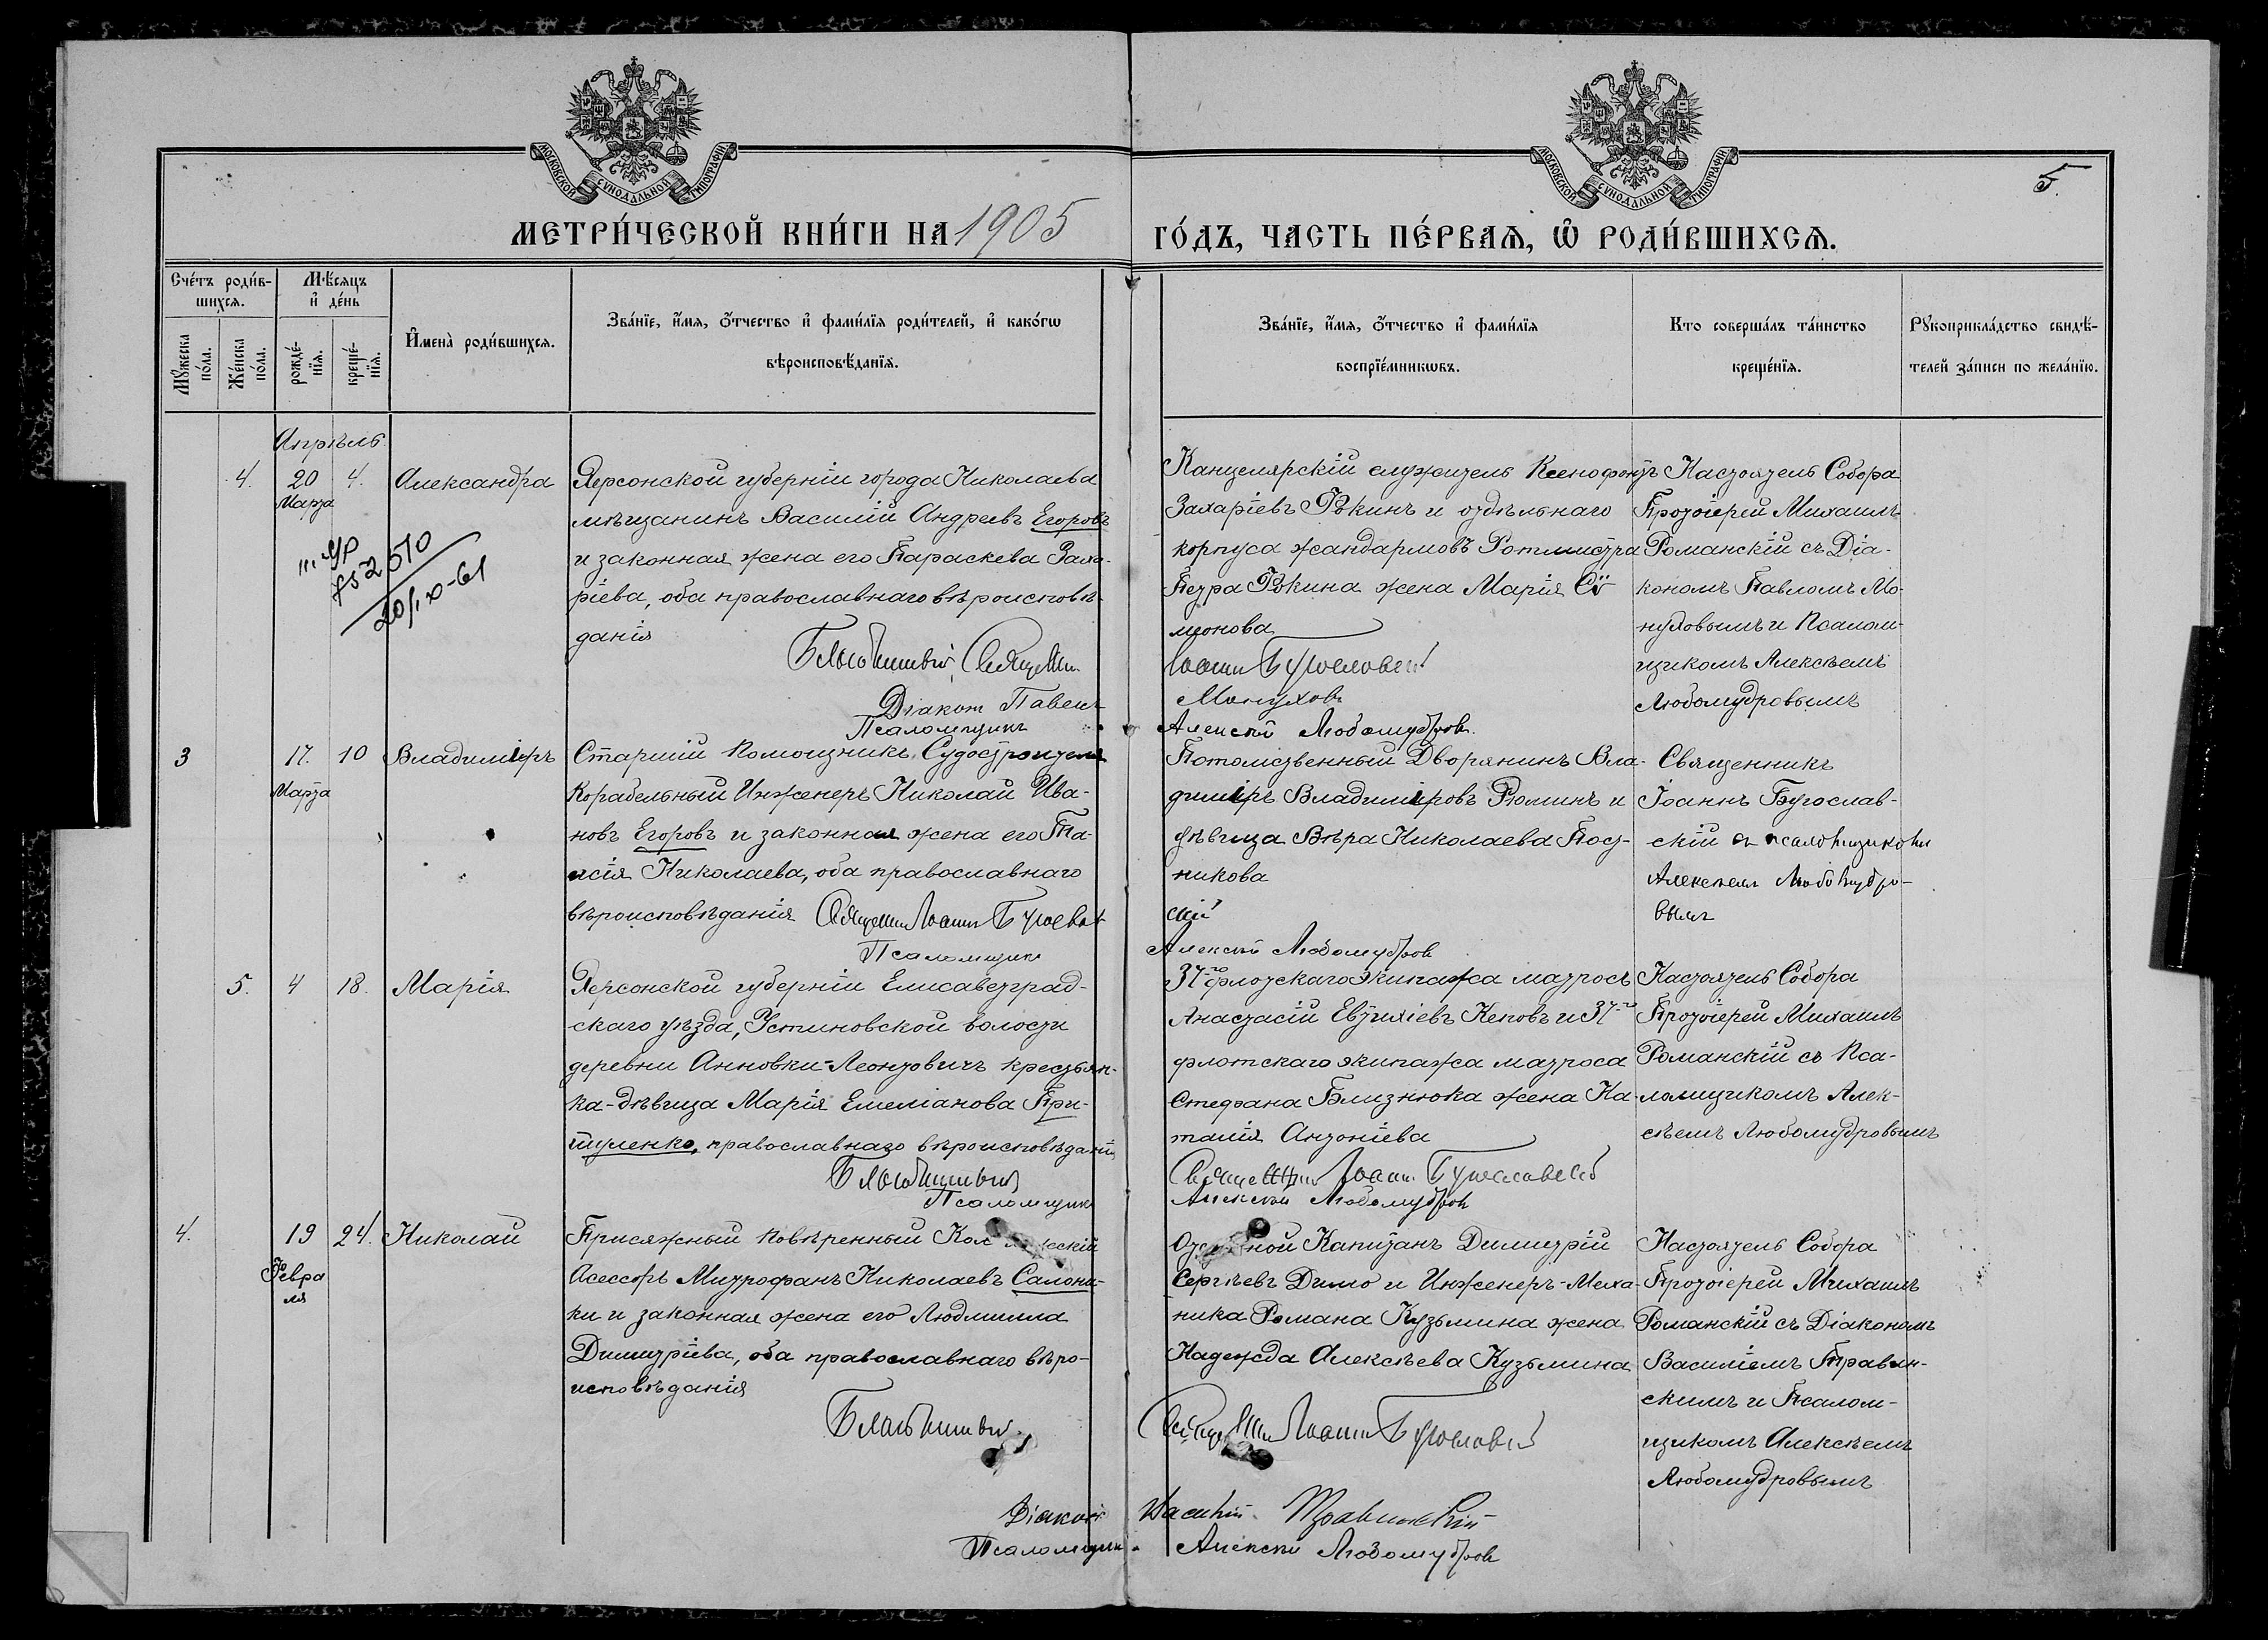 МОСКОВСКОЙ СѴНОДАЛЬНОЙ ТИПОГРАФІИ
МОСКОВСКОЙ СѴНОДАЛЬНОЙ ТИПОГРАФІИ
5.
МЕТРИ́ЧЕСКОЙ КНИ́ГИ НА 1905
ГО́ДЪ, ЧАСТЬ ПЕ́РВАѦ, Ѡ҆ РОДИ́ВШИХСѦ.
Сче́тъ роди́в-
шихсѧ.
Мꙋ́жеска
по́ла.
Же́нска
по́ла.
Мѣ́сѧцъ
и҆ де́нь
рожде́-
нїѧ.
креще́-
нїѧ.
И҆мена̀ роди́вшихсѧ.
Зва́нїе, и҆́мѧ, ѻ҆́тчество и҆ фами́лїѧ роди́телей, и҆ како́гѡ
вѣроисповѣ́данїѧ.
Зва́нїе, и҆́мѧ, ѻ҆́тчество и҆ фами́лїѧ
воспрїе́мникѡвъ.
Кто соверша́лъ та́инство
креще́нїѧ.
Рꙋкоприкла́дство свидѣ́-
телей за́писи по жела́нїю.
Апрѣль
4. 20 4. Александра
Марта
752510
20/IX-61
Херсонской губерніи города Николаева
мѣщанинъ Василій Андреевъ Егоровъ
и законная жена его Параскева Заха-
ріева, оба православнаго вѣроисповѣ-
данія
Діаконъ Павелъ
Псаломщикъ
Канцелярскій служитель Ксенофонтъ
Захаріевъ Фокинъ и отдѣльнаго
корпуса жандармовъ Ротмистра
Петра Фокина жена Марія Сѵ-
меонова
Монухов
Алексѣй Любомудровъ.
Настоятель Собора
Протоіерей Михаилъ
Романскій съ Діа-
кономъ Павломъ Мо-
нуховымъ и Псалом-
щикомъ Алексѣемъ
Любомудровымъ
3 17. 10 Владиміръ
Марта
Старшій Помощникъ Судостроителя
Корабельный Инженеръ Николай Ива-
новъ Егоровъ и законная жена его Та-
исія Николаева, оба православнаго
вѣроисповѣданія Священникъ Іоаннъ Бугослав
Псаломщикъ
Потомственный Дворянинъ Вла-
диміръ Владиміровъ Рюминъ и
дѣвица Вѣра Николаева Пост-
никова
скій
Алексѣй Любомудровъ
Священникъ
Іоаннъ Бугослав-
скій съ псаломщикомъ
Алексѣемъ Любомудро-
вымъ
5. 4 18. Марія
Херсонской губерніи Елисаветград-
скаго уѣзда, Устиновской волости
деревни Анновки-Леонтовичъ крестьян-
ка-дѣвица Марія Емеліанова При-
туленко, православнаго вѣроисповѣданія
Псаломщикъ
37-го флотскаго экипажа матросъ
Анастасій Евтихіевъ Кеповъ и 37-го
флотскаго экипажа матроса
Стефана Близнюка жена На-
талія Антоніева
Священникъ Іоаннъ Бугославскій
Алексѣй Любомудровъ
Настоятель Собора
Протоіерей Михаилъ
Романскій съ Пса-
ломщикомъ Алек-
сѣемъ Любомудровымъ
4. 19 24. Николай
Февра
ля
Присяжный Повѣренный Кол ежскій
Асессоръ Митрофанъ Николаевъ Салони-
ки и законная жена его Людмилла
Димитріева, оба православнаго вѣро-
исповѣданія
Діаконъ
Псаломщикъ
Отставной Капитанъ Димитрій
Сергѣевъ Димо и Инженеръ-Меха-
ника Романа Кузьмина жена
Надежда Алексѣева Кузьмина
Священникъ Іоаннъ Бугославскій
Василій Травинскій
Алексѣй Любомудровъ
Настоятель Собора
Протоіерей Михаилъ
Романскій съ Діакономъ
Василіемъ Травин-
скимъ и Псалом-
щикомъ Алексѣемъ
Любомудровымъ